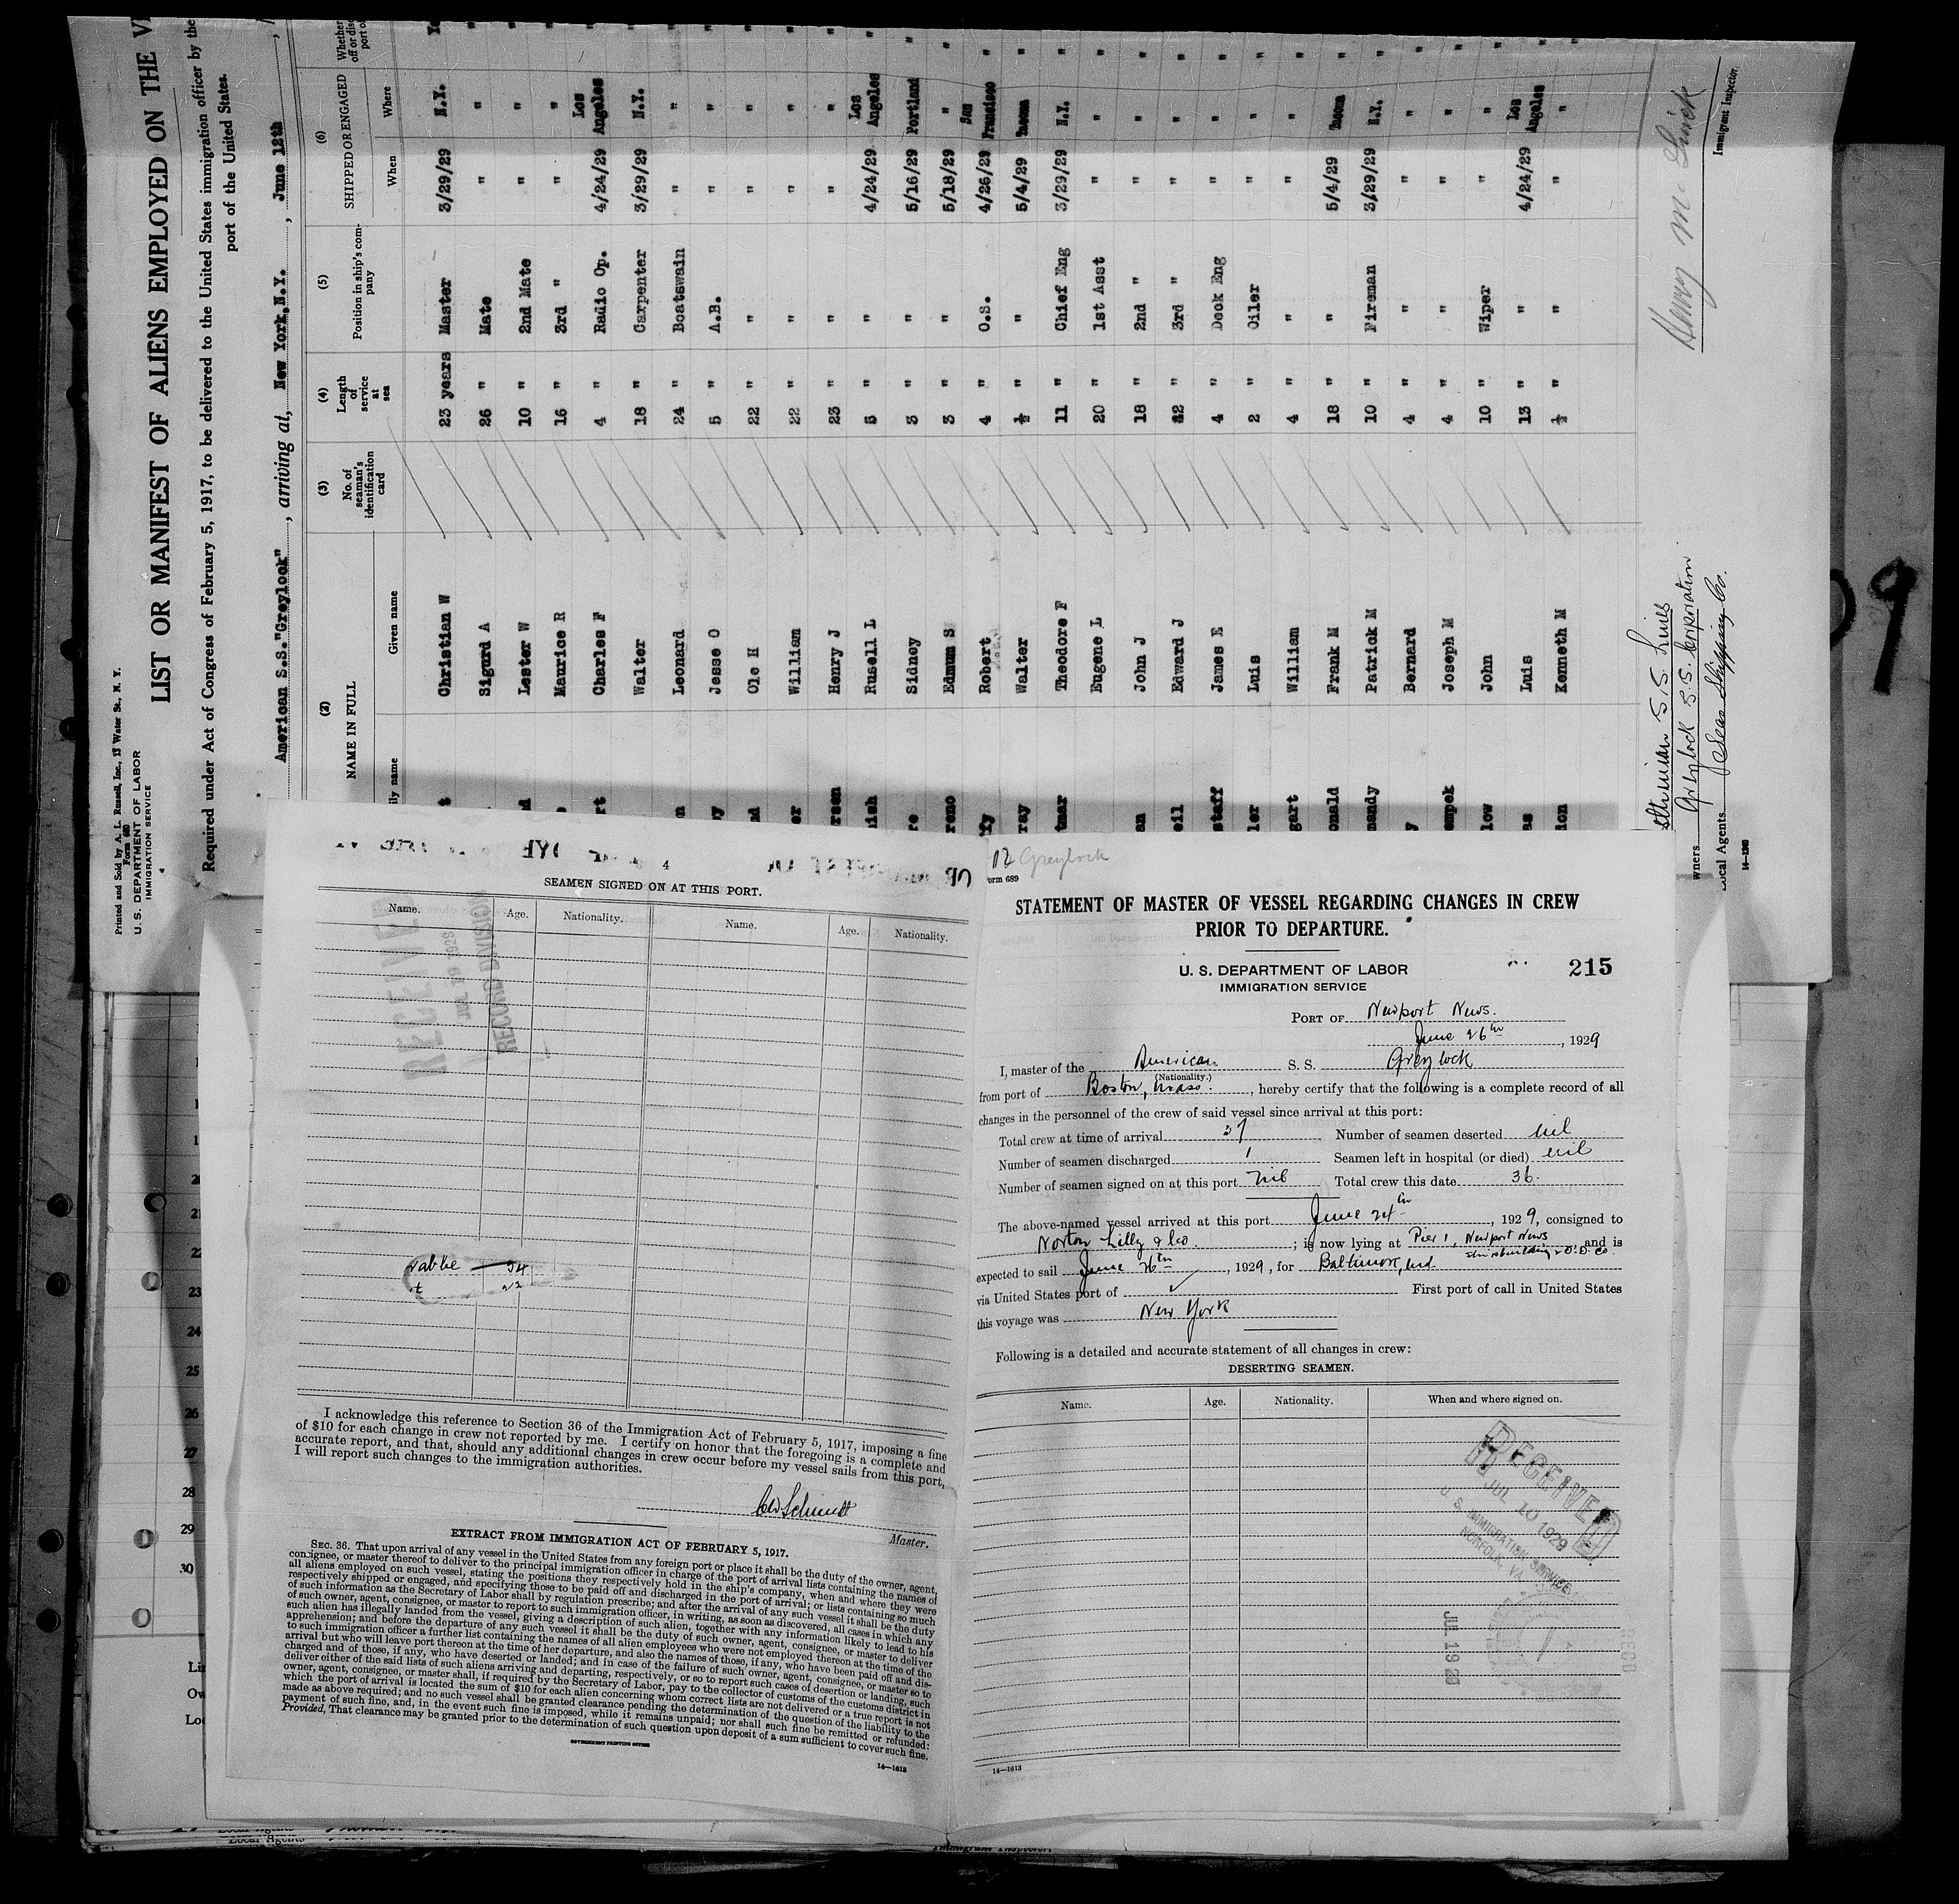 Printed and Sold by A. L. Russell, Inc., 17 Water St., N. Y.
Form 680
U. S. DEPARTMENT OF LABOR
IMMIGRATION SERVICE
LIST OR MANIFEST OF ALIENS EMPLOYED ON THE
Required under Act of Congress of February 5, 1917, to be delivered to the United States immigration officer by the
port of the United States.
American S.S."Greylock" , arriving at, New York,N.Y. , June 12th
(2) (3) (4) (5) (6)
NAME IN FULL No. of seaman's identification card Length of service at sea Position in ship's company SHIPPED OR ENGAGED
Given name When Where
Christian W 23 years Master 3/29/29 N.Y.
Sigurd A 26 " Mate " "
Lester W 10 " 2nd Mate " "
Maurice R 16 " 3rd " " "
Charles F 4 " Radio Op. 4/24/29 Los Angeles
Walter 18 " Carpenter 3/29/29 N.Y.
Leonard 24 " Boatswain " "
Jesse O 5 " A.B. " "
Ole H 22 " " " "
William 22 " " " "
Henry J 23 " " " "
Russell L 5 " " 4/24/29 Los Angeles
Sidney 3 " " 5/16/29 Portland
Edmum S 3 " " 5/18/29 "
Robert 4 " O.S. 4/26/29 San Francisco
Walter ½ " " 5/4/29 Tacoma
Theodore F 11 " Chief Eng 3/29/29 N.Y.
Eugene L 20 " 1st Asst " "
John J 18 " 2nd " " "
Edward J 22 " 3rd " " "
James E 4 " Deck Eng " "
Luis 2 " Oiler " "
William 4 " " " "
Frank M 18 " " 5/4/29 Tacoma
Patrick M 10 " Fireman 3/29/29 N.Y.
Bernard 4 " " " "
Joseph M 4 " " " "
John 10 " Wiper " "
Luis 13 " " 4/24/29 Los Angeles
Kenneth M ½ " " " "
S.S. Lines
Greylock S.S. Corporation
Local Agents
14—1240
Immigrant Inspector.
09
4
SEAMEN SIGNED ON AT THIS PORT.
Name. Age. Nationality. Name. Age. Nationality.
RECEIVED
RECORD DIVISION
I acknowledge this reference to Section 36 of the Immigration Act of February 5, 1917, imposing a fine
of $10 for each change in crew not reported by me. I certify on honor that the foregoing is a complete and
accurate report, and that, should any additional changes in crew occur before my vessel sails from this port,
I will report such changes to the immigration authorities.
CW Schmidt
Master.
EXTRACT FROM IMMIGRATION ACT OF FEBRUARY 5, 1917.
SEC. 36. That upon arrival of any vessel in the United States from any foreign port or place it shall be the duty of the owner, agent,
consignee, or master thereof to deliver to the principal immigration officer in charge of the port of arrival lists containing the names of
all aliens employed on such vessel, stating the positions they respectively hold in the ship's company, when and where they were
respectively shipped or engaged, and specifying those to be paid off and discharged in the port of arrival; or lists containing so much
of such information as the Secretary of Labor shall by regulation prescribe; and after the arrival of any such vessel it shall be the duty
of such owner, agent, consignee, or master to report to such immigration officer, in writing, as soon as discovered, all cases in which any
such alien has illegally landed from the vessel, giving a description of such alien, together with any information likely to lead to his
apprehension; and before the departure of any such vessel it shall be the duty of such owner, agent, consignee, or master to deliver
to such immigration officer a further list containing the names of all alien employees who were not employed thereon at the time of the
arrival but who will leave port thereon at the time of her departure, and also the names of those, if any, who have been paid off and dis-
charged and of those, if any, who have deserted or landed; and in case of the failure of such owner, agent, consignee, or master so to
deliver either of the said lists of such aliens arriving and departing, respectively, or so to report such cases of desertion or landing, such
owner, agent, consignee, or master shall, if required by the Secretary of Labor, pay to the collector of customs of the customs district in
which the port of arrival is located the sum of $10 for each alien concerning whom correct lists are not delivered or a true report is not
made as above required; and no such vessel shall be granted clearance pending the determination of the question of the liability to the
payment of such fine, and, in the event such fine is imposed, while it remains unpaid; nor shall such fine be remitted or refunded:
Provided, That clearance may be granted prior to the determination of such question upon deposit of a sum sufficient to cover such fine.
GOVERNMENT PRINTING OFFICE
14—1613
Greylock
Form 689
STATEMENT OF MASTER OF VESSEL REGARDING CHANGES IN CREW
PRIOR TO DEPARTURE.
U. S. DEPARTMENT OF LABOR
IMMIGRATION SERVICE
215
PORT OF Newport News.
June 26th, 1929
I, master of the American S. S. Greylock
(Nationality.)
from port of Boston, Mass., hereby certify that the following is a complete record of all
changes in the personnel of the crew of said vessel since arrival at this port:
Total crew at time of arrival 37 Number of seamen deserted nil
Number of seamen discharged 1 Seamen left in hospital (or died) nil
Number of seamen signed on at this port nil Total crew this date 36.
The above-named vessel arrived at this port June 24th, 1929, consigned to
Norton Lilly & Co. ; is now lying at Pier 1, Newport News Shipbuilding & D.D. Co. and is
expected to sail June 26th, 1929, for Baltimore, Md.
via United States port of ✓ First port of call in United States
this voyage was New York
Following is a detailed and accurate statement of all changes in crew:
DESERTING SEAMEN.
Name. Age. Nationality. When and where signed on.
RECEIVED
JUL 10 1929
U. S. IMMIGRATION SERVICE
NORFOLK, VA.
JUL 19 29
RECD
14—1613
22
23
24
25
26
27
28
29
30